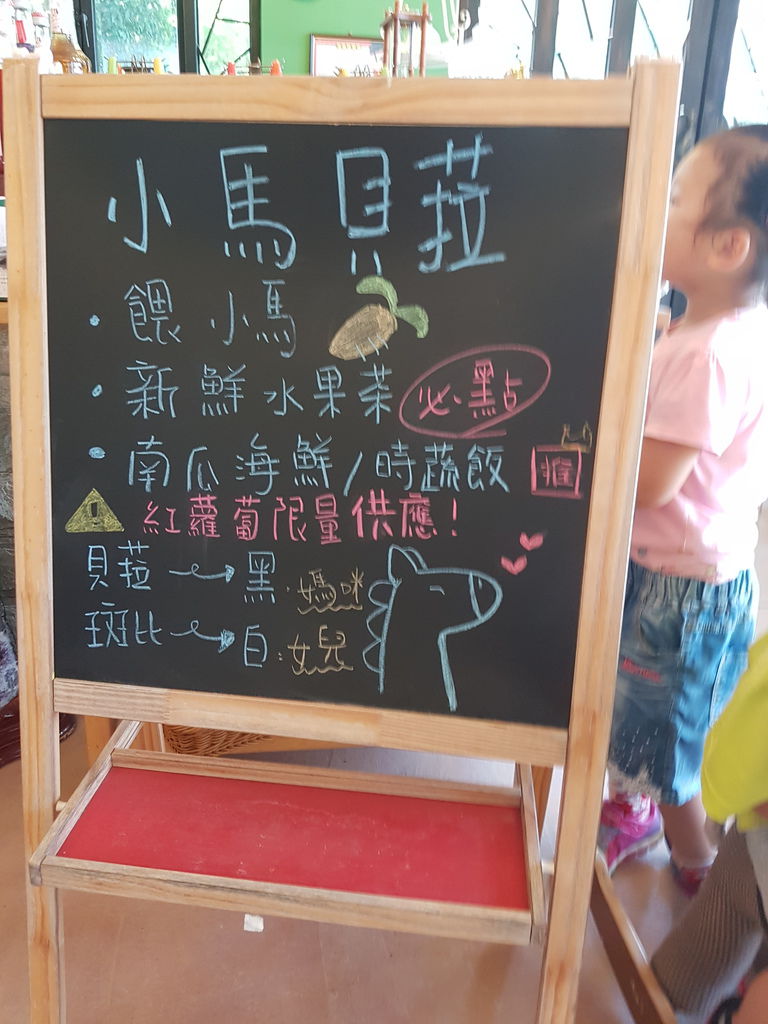 小馬貝菈
・餵小馬
・新鮮水果茶 必點
・南瓜海鮮/時蔬飯
! 紅蘿蔔限量供應!
貝菈 → 黑:媽咪
斑比 → 白:女兒